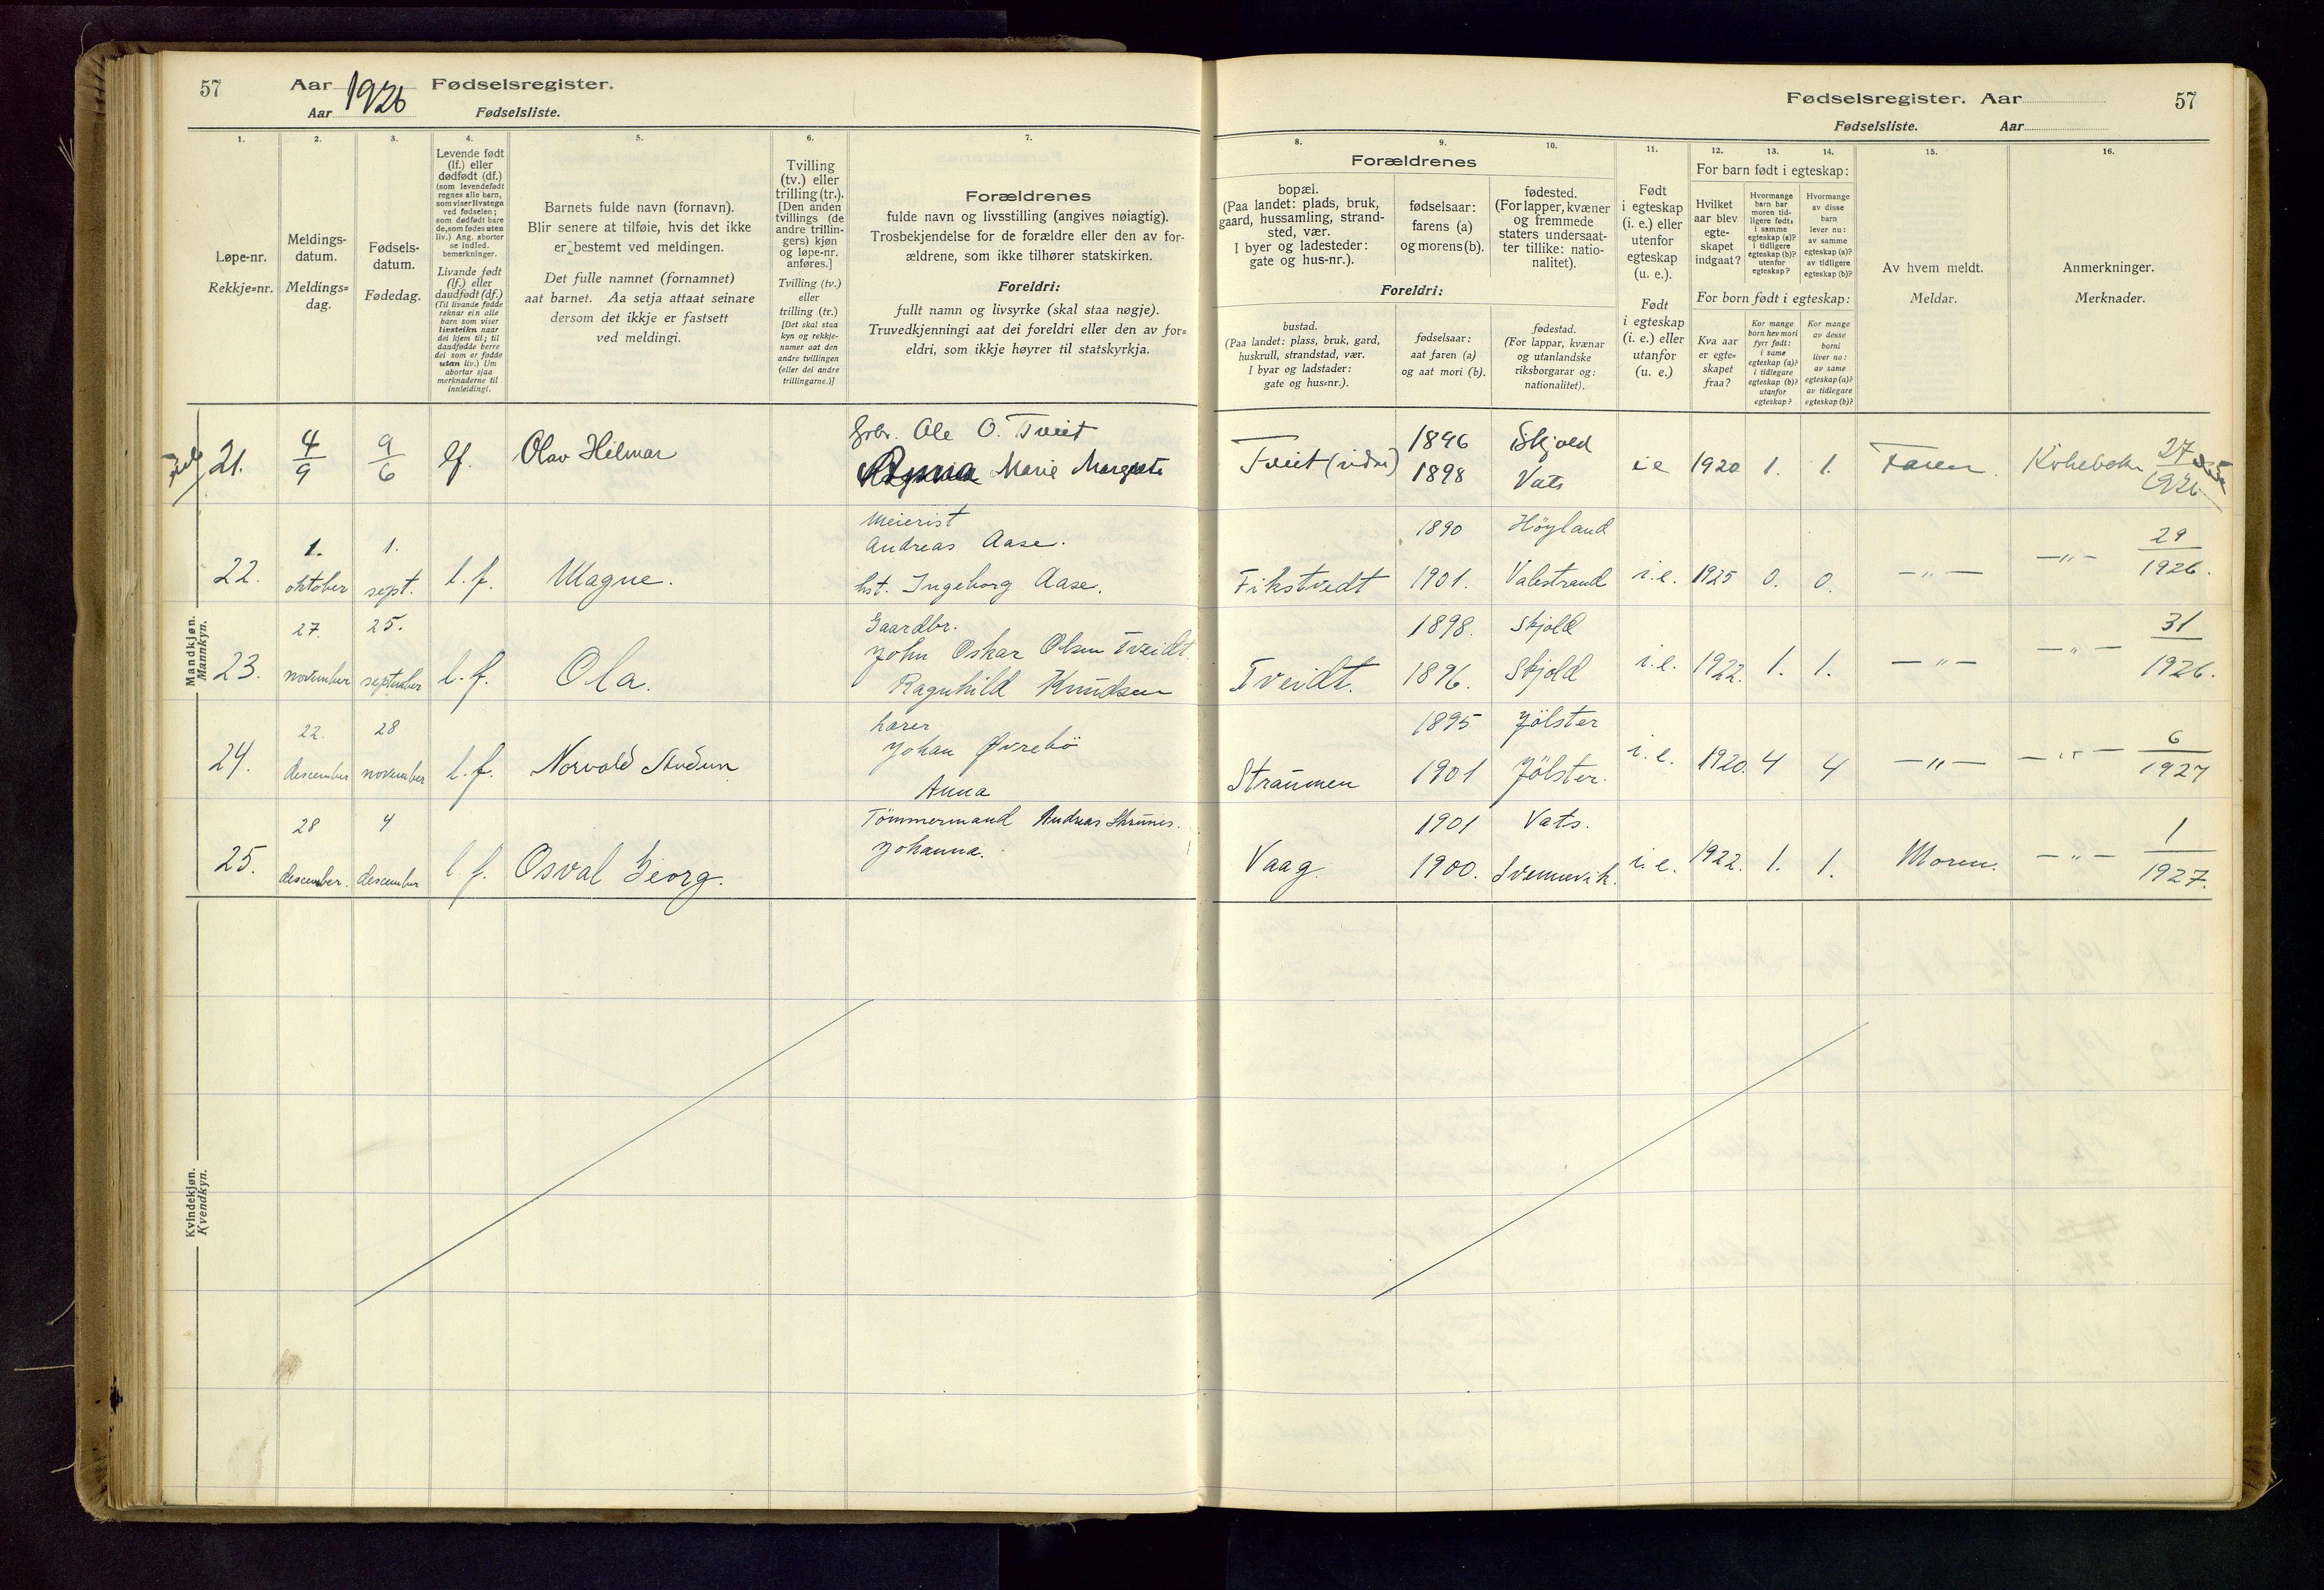 57 Aar 1926 Fødselsregister.
Aar Fødselsliste.
Fødselsregister. Aar 57
Fødselsliste. Aar
1. 2. 3. 4. 5. 6. 7.
Løpe-nr.
Rekkje=nr.
Meldings-
datum.
Meldings=
dag.
Fødsels-
datum.
Fødedag.
Levende født
(lf.) eller
dødfødt (df.)
(som levendefødt
regnes alle barn,
som viser livstegn
ved fødselen;
som dødfødt bare
de, som fødes uten
liv.) Ang. aborter
se indled.
bemerkninger.
Livande født
(lf.) eller
daudfødt (df.)
(Til livande fødde
reknar ein alle
barn som viser
livsteikn naar
dei kjem til; til
daudfødde berre
dei som er fødde
utan liv.) Um
abortar sjaa
merknaderne til
innleidingi.
Barnets fulde navn (fornavn).
Blir senere at tilføie, hvis det ikke
er bestemt ved meldingen.
Det fulle namnet (fornamnet)
aat barnet. Aa setja attaat seinare
dersom det ikkje er fastsett
ved meldingi.
Tvilling
(tv.) eller
trilling (tr.).
[Den anden
tvillings (de
andre trillin-
gers) kjøn
og løpe-nr.
anføres.]
Tvilling (tv.)
eller
trilling (tr.)
[Det skal staa
kyn og rekkje-
numer aat den
andre tvillingen
(eller dei andre
trillingarne.)]
Forældrenes
fulde navn og livsstilling (angives nøiagtig).
Trosbekjendelse for de forældre eller den av for-
ældrene, som ikke tilhører statskirken.
Foreldri:
fullt namn og livsyrke (skal staa nøgje).
Truvedkjenningi aat dei foreldri eller den av for=
eldri, som ikkje høyrer til statskyrkja.
8. 9. 10. 11. 12. 13. 14. 15. 16.
Forældrenes
bopæl.
(Paa landet: plads, bruk,
gaard, hussamling, strand-
sted, vær.
I byer og ladesteder:
gate og hus-nr.).
fødselsaar:
farens (a)
og morens (b).
fødested.
(For lapper, kvæner
og fremmede
staters undersaat-
ter tillike: natio-
nalitet).
Foreldri:
bustad.
(Paa landet: plass, bruk, gard,
huskrull, strandstad, vær.
I byar og ladstader:
gate og hus=nr.).
fødselsaar:
aat faren (a)
og aat mori (b).
fødestad.
(For lappar, kvænar
og utanlandske
riksborgarar og:
nationalitet).
Født
i egteskap
(i. e.) eller
utenfor
egteskap
(u. e.).
Født
i egteskap
(i. e.) eller
utanfor
(u. e.)
For barn født i egteskap:
Hvilket
aar blev
egte-
skapet
indgaat?
Hvormange
barn har
moren tid-
ligere født:
i samme
egteskap (a)?
i tidligere
egteskap (b)?
utenfor
egteskap?
Hvormange
av disse
barn
lever nu:
av samme
egteskap (a)?
av tidligere
egteskap (b)?
For born født i egteskap:
Kva aar
er egte=
skapet
fraa?
Kor mange
born hev mori
fyrr født:
i same
egteskap (a)?
i tidlegare
egteskap (b)?
utanfor
egteskap?
Kor mange
av desse
borni
liver no:
av same
egteskap (a)?
av tidlegare
egteskap (b)?
Av hvem meldt.
Meldar.
Anmerkninger.
Merknader.
Mandkjøn.
Mannkyn.
21. 4/9 9/6 lf. Olav Hilmar Grbr. Ole O. Tveit
Anna Marie Margrete
Tveit 1896 Skjold
1898 Vats
i e 1920 1. 1. Faren 27/1926
22. 1. oktober 1. sept. l. f. Magne. Meierist
Andreas Aase.
hst. Ingeborg Aase.
Fikstvedt 1890 Höyland
1901. Valestrand
i. e. 1925 0. 0. —"— —"— 29/1926.
23. 27. november 25. september l. f. Ola. Gaardbr.
John Oskar Olsen Tveidt
Ragnhild Knudsen
Tveidt. 1898. Skjold
1896. Skjold
i. e. 1922. 1. 1. —"— —"— 31/1926.
24. 22. descember 28 november l. f. Norvald Audun Lærer
Johan Øvrebö
Anna
Straumen 1895 Jölster
1901 Jölster.
i. e. 1920. 4 4 —"— —"— 6/1927
25. 28 descember. 4 descember l. f. Osval Georg. Tömmermand Andreas
Johanna.
Vaag. 1901 Vats.
1900.
i. e. 1922. 1. 1. Moren. —"— 1/1927.
Kvindekjøn.
Kvendkyn.